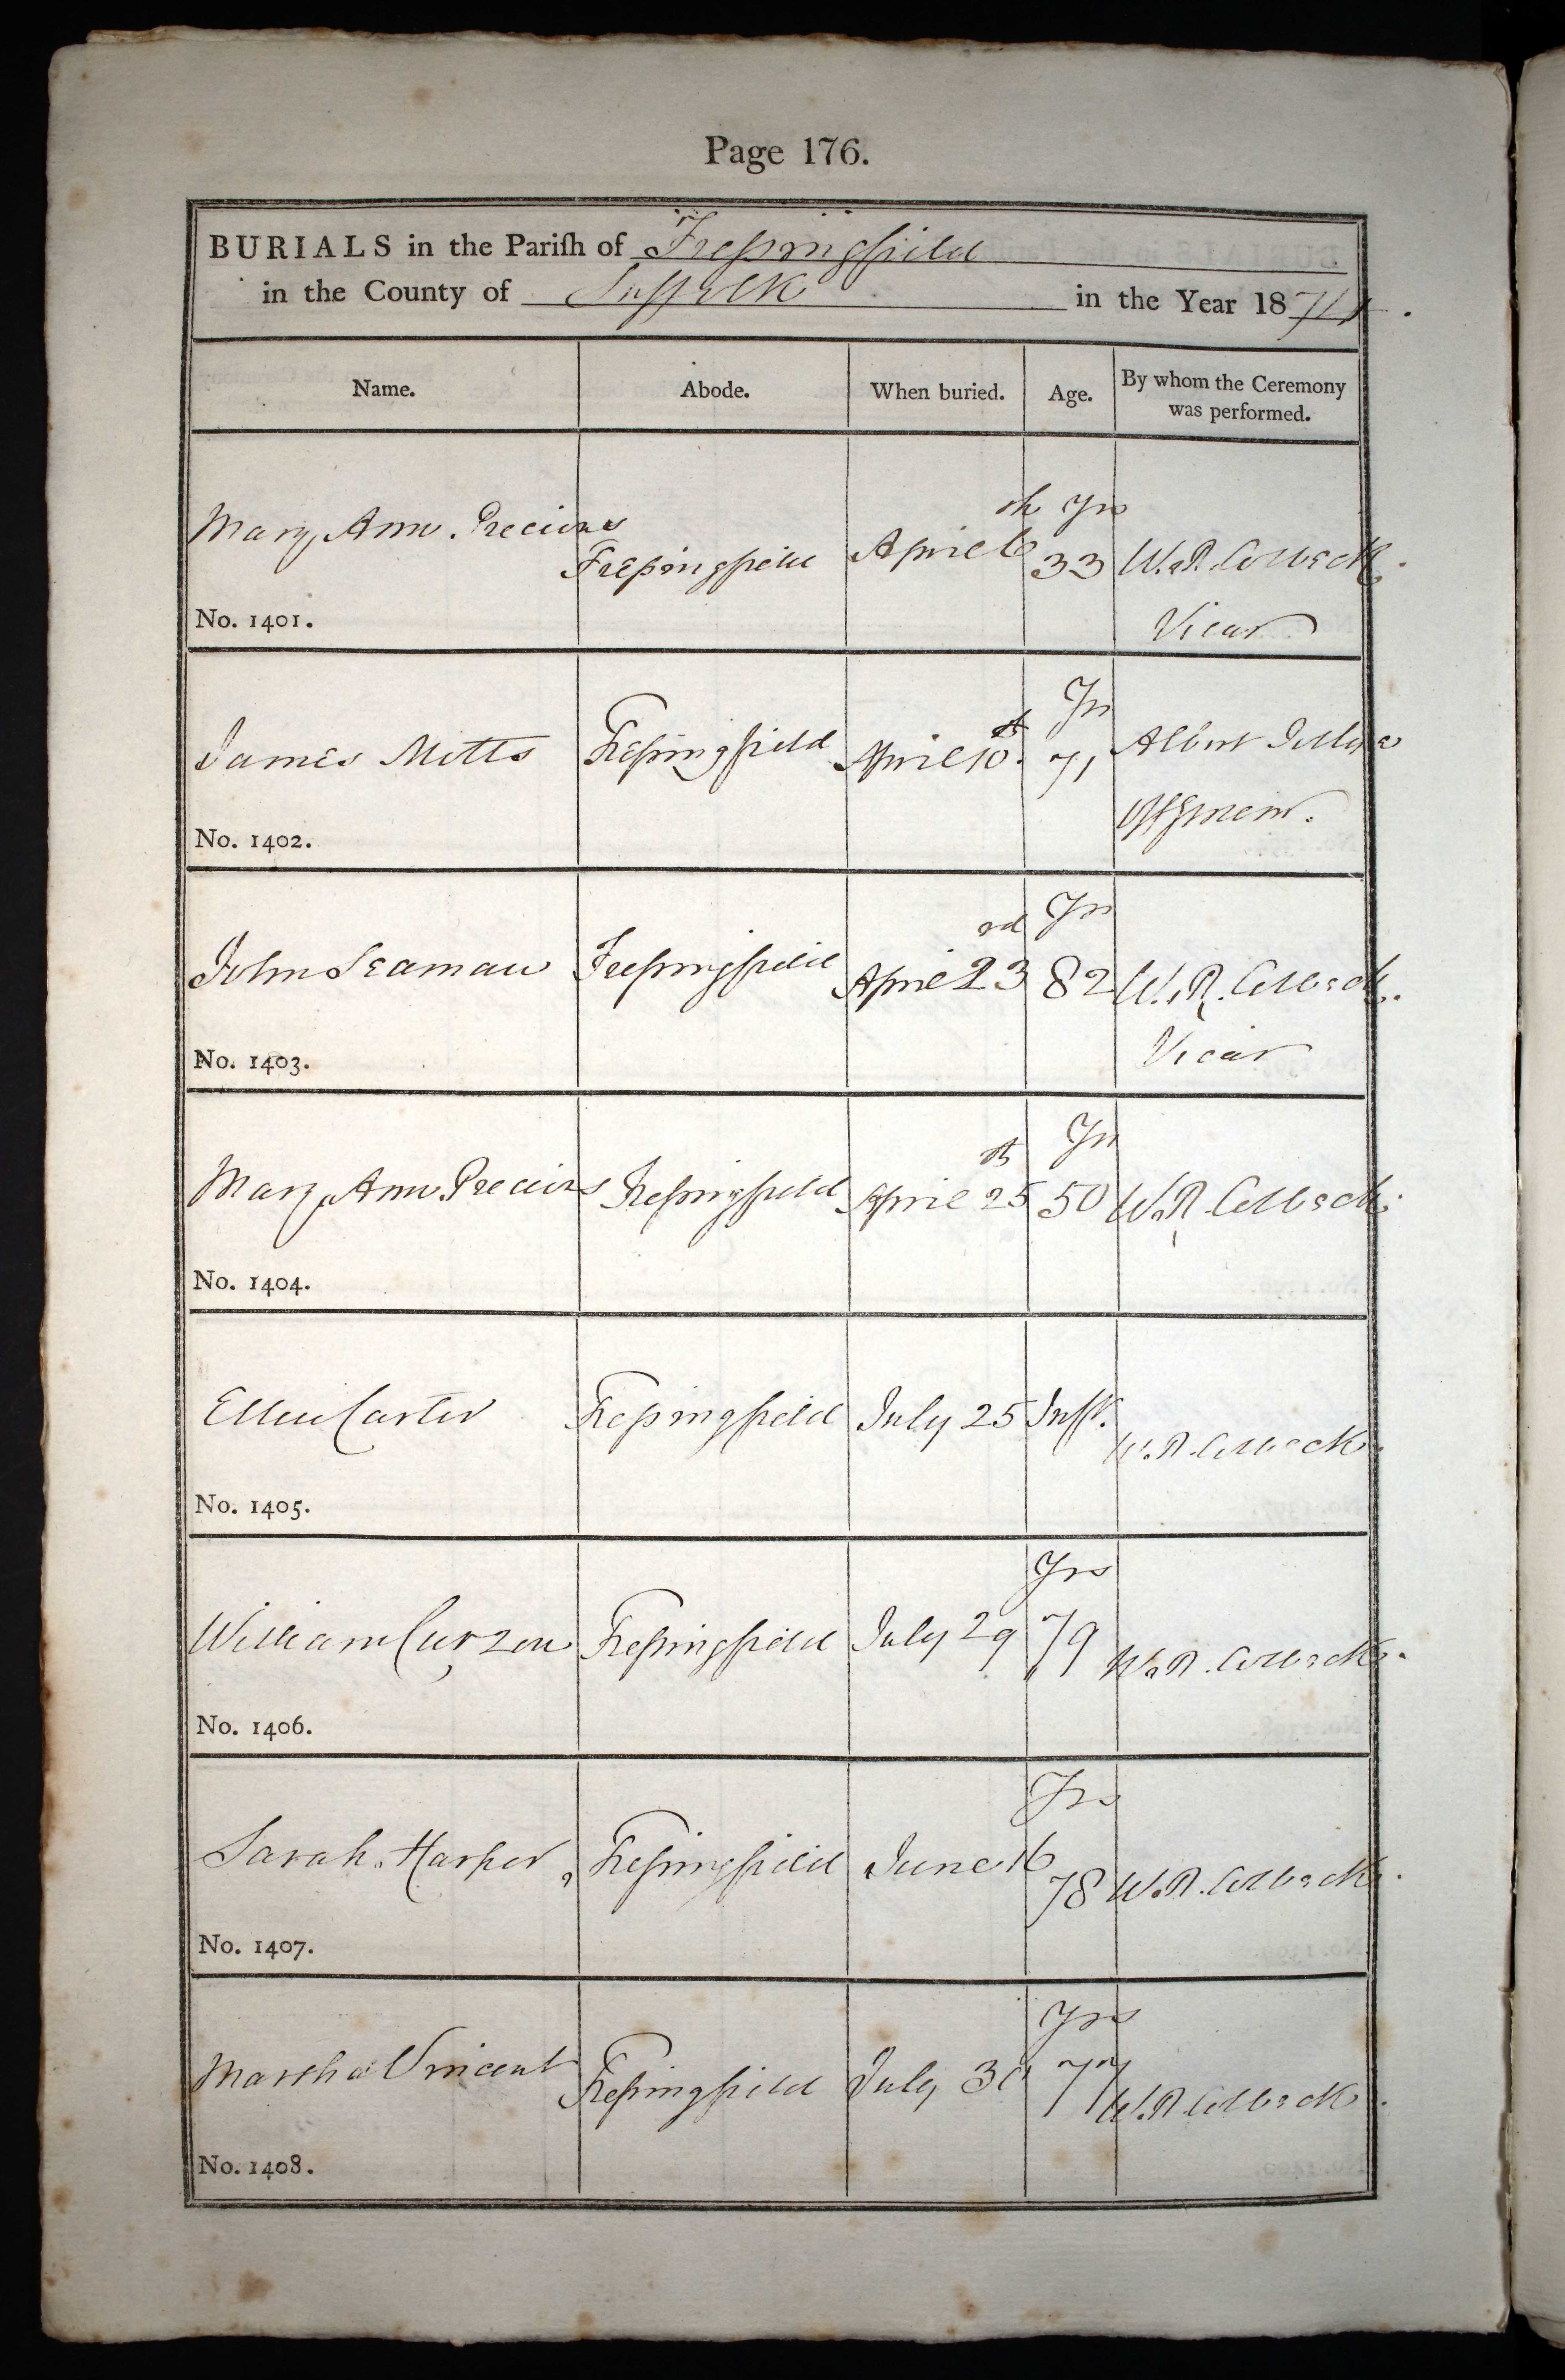 Page 176.
BURIALS in the Parish of Fressingfield
in the County of Suffolk in the Year 1874.
Name. Abode. When buried. Age. By whom the Ceremony was performed.
th Yrs
Mary Ann Precious Fressingfield April 6 33 W. R. Colbeck.
No. 1401. Vicar
th Yrs
James Mitts Fressingfield April 10. 71 Albert
No. 1402.
rd Yrs
John Seaman Fressingfield April 23 82 W. R. Colbeck.
No. 1403. Vicar
th Yrs
Mary Ann Precious Fressingfield April 25 50 W. R. Colbeck.
No. 1404.
Ellen Carter Fressingfield July 25 Inft. W. R. Colbeck.
No. 1405.
Yrs
William Curzon Fressingfield July 29 79 W. R. Colbeck.
No. 1406.
Yrs
Sarah Harper Fressingfield June 16 78 W. R. Colbeck.
No. 1407.
Yrs
Martha Vincent Fressingfield July 77 W. R. Colbeck.
No. 1408.